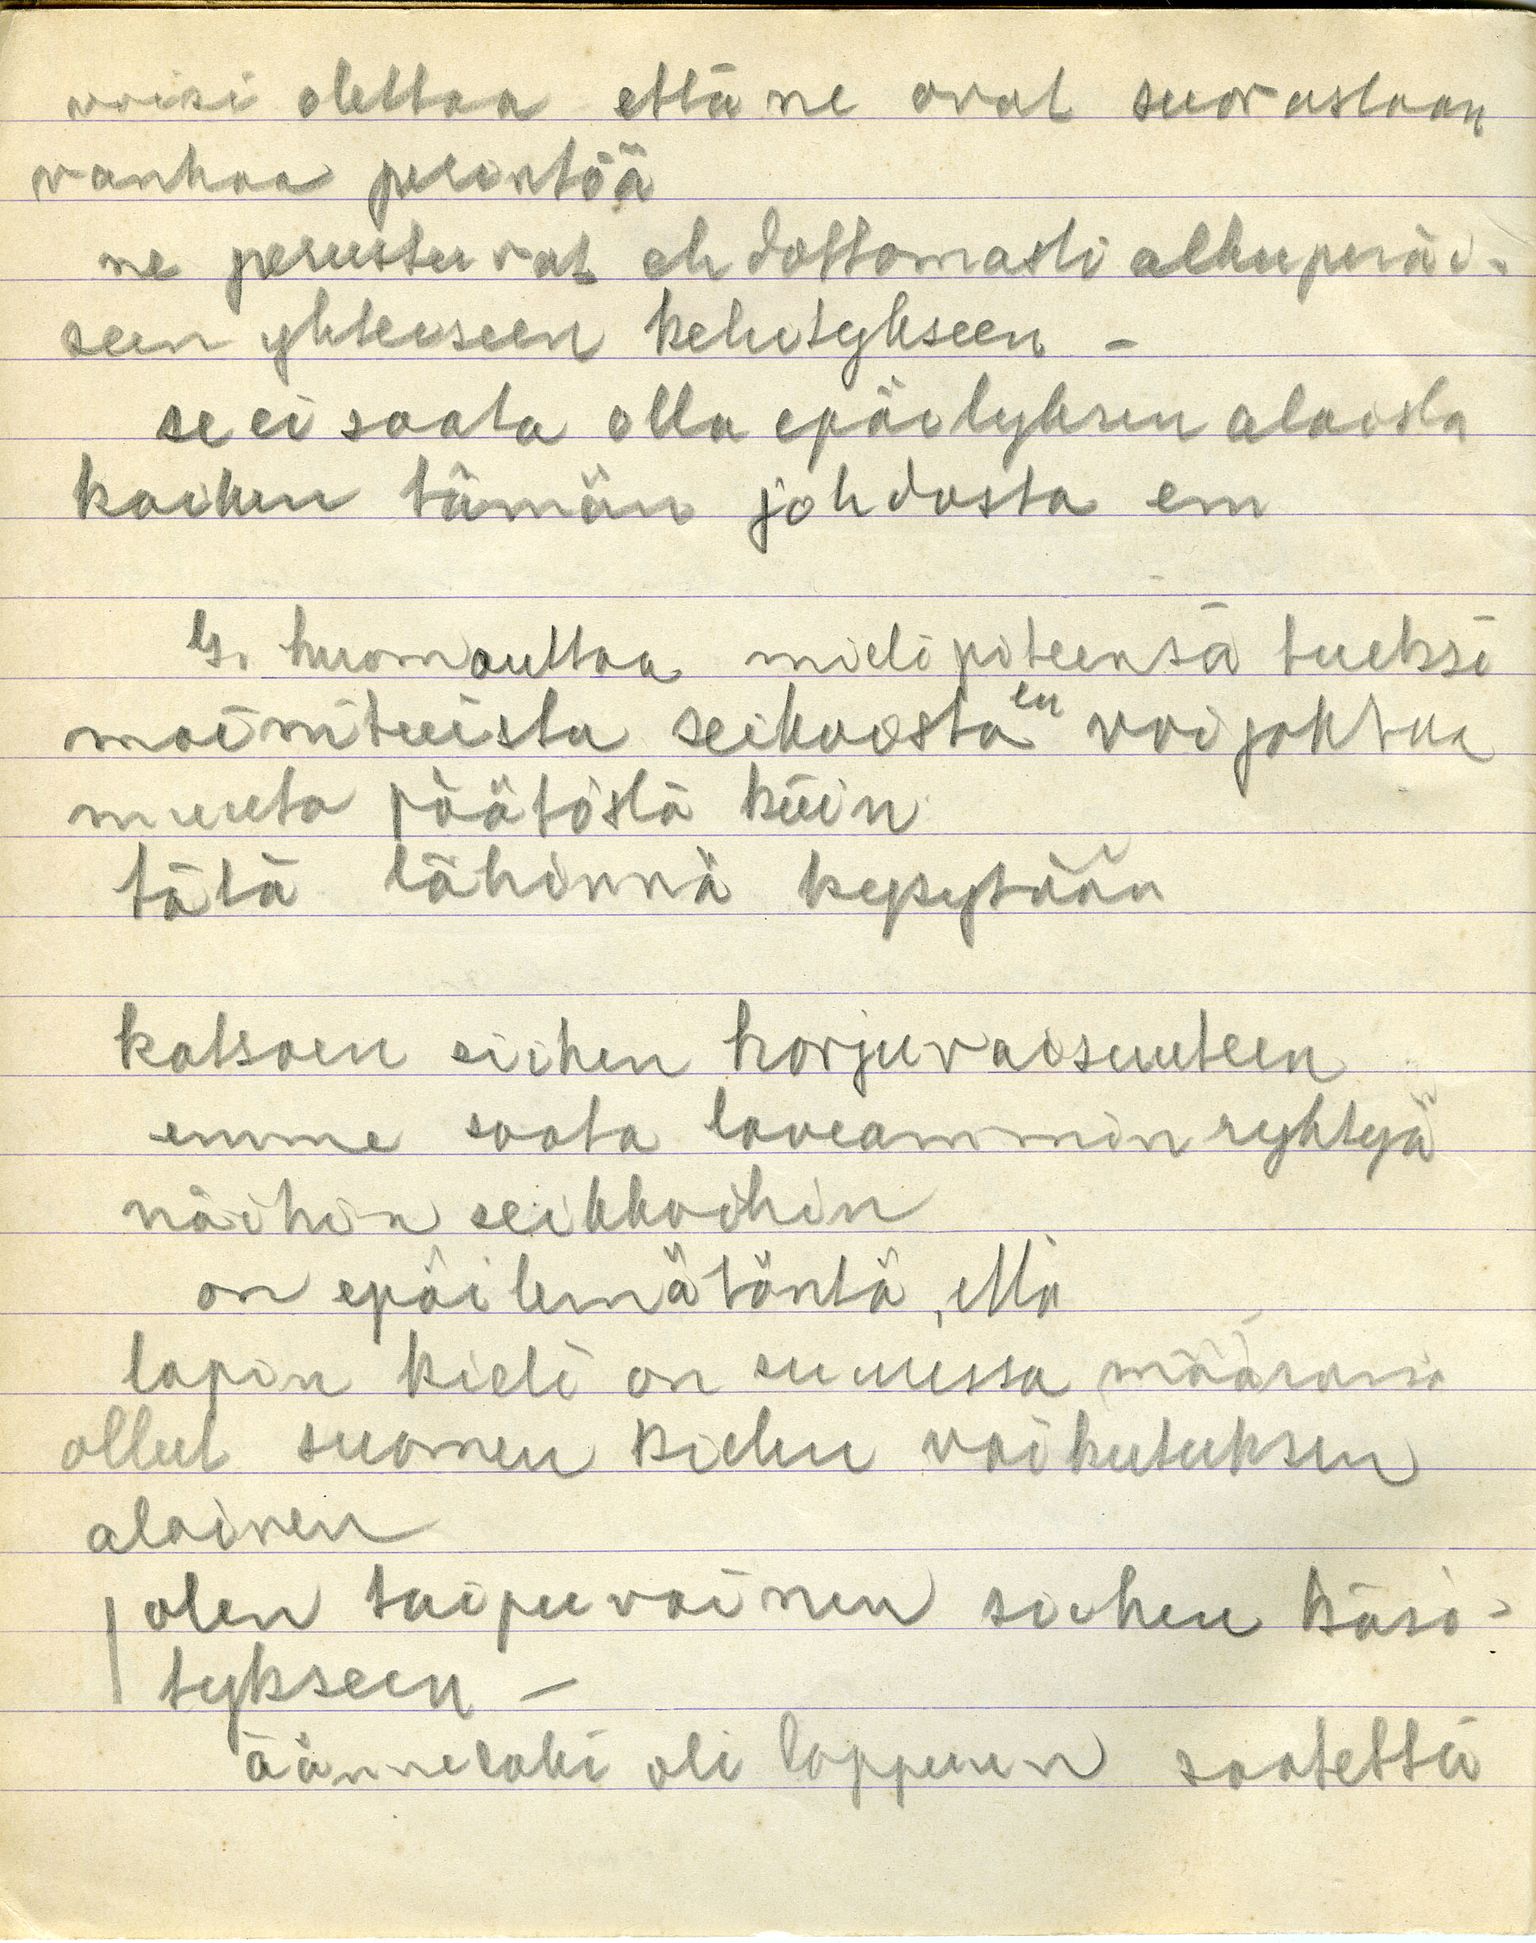 voisi olettaa että ne ovat suorastaan
vanhaa perintöä
ne perustuvat ehdottomasti alkuperäi-
seen yhteiseen kehitykseen –
se ei saata olla epäilyksen alaista
kaiken tämän johdosta em
G. huomauttaa mielipiteensä tueksi
mainituista seikoista en voi johtaa
muuta päätöstä kuin
tätä lähinnä kysytään
katsoen siihen harjuvaisuuteen
emme saata laveammin ryhtyä
näihin seikkoihin
on epäilemätöntä, että
lapin kieli on suuressa määrässä
ollut suomen kielen vaikutuksen
alainen
olen taipuvainen siihen käsi-
tykseen –
äännelaki oli loppuun saatettu